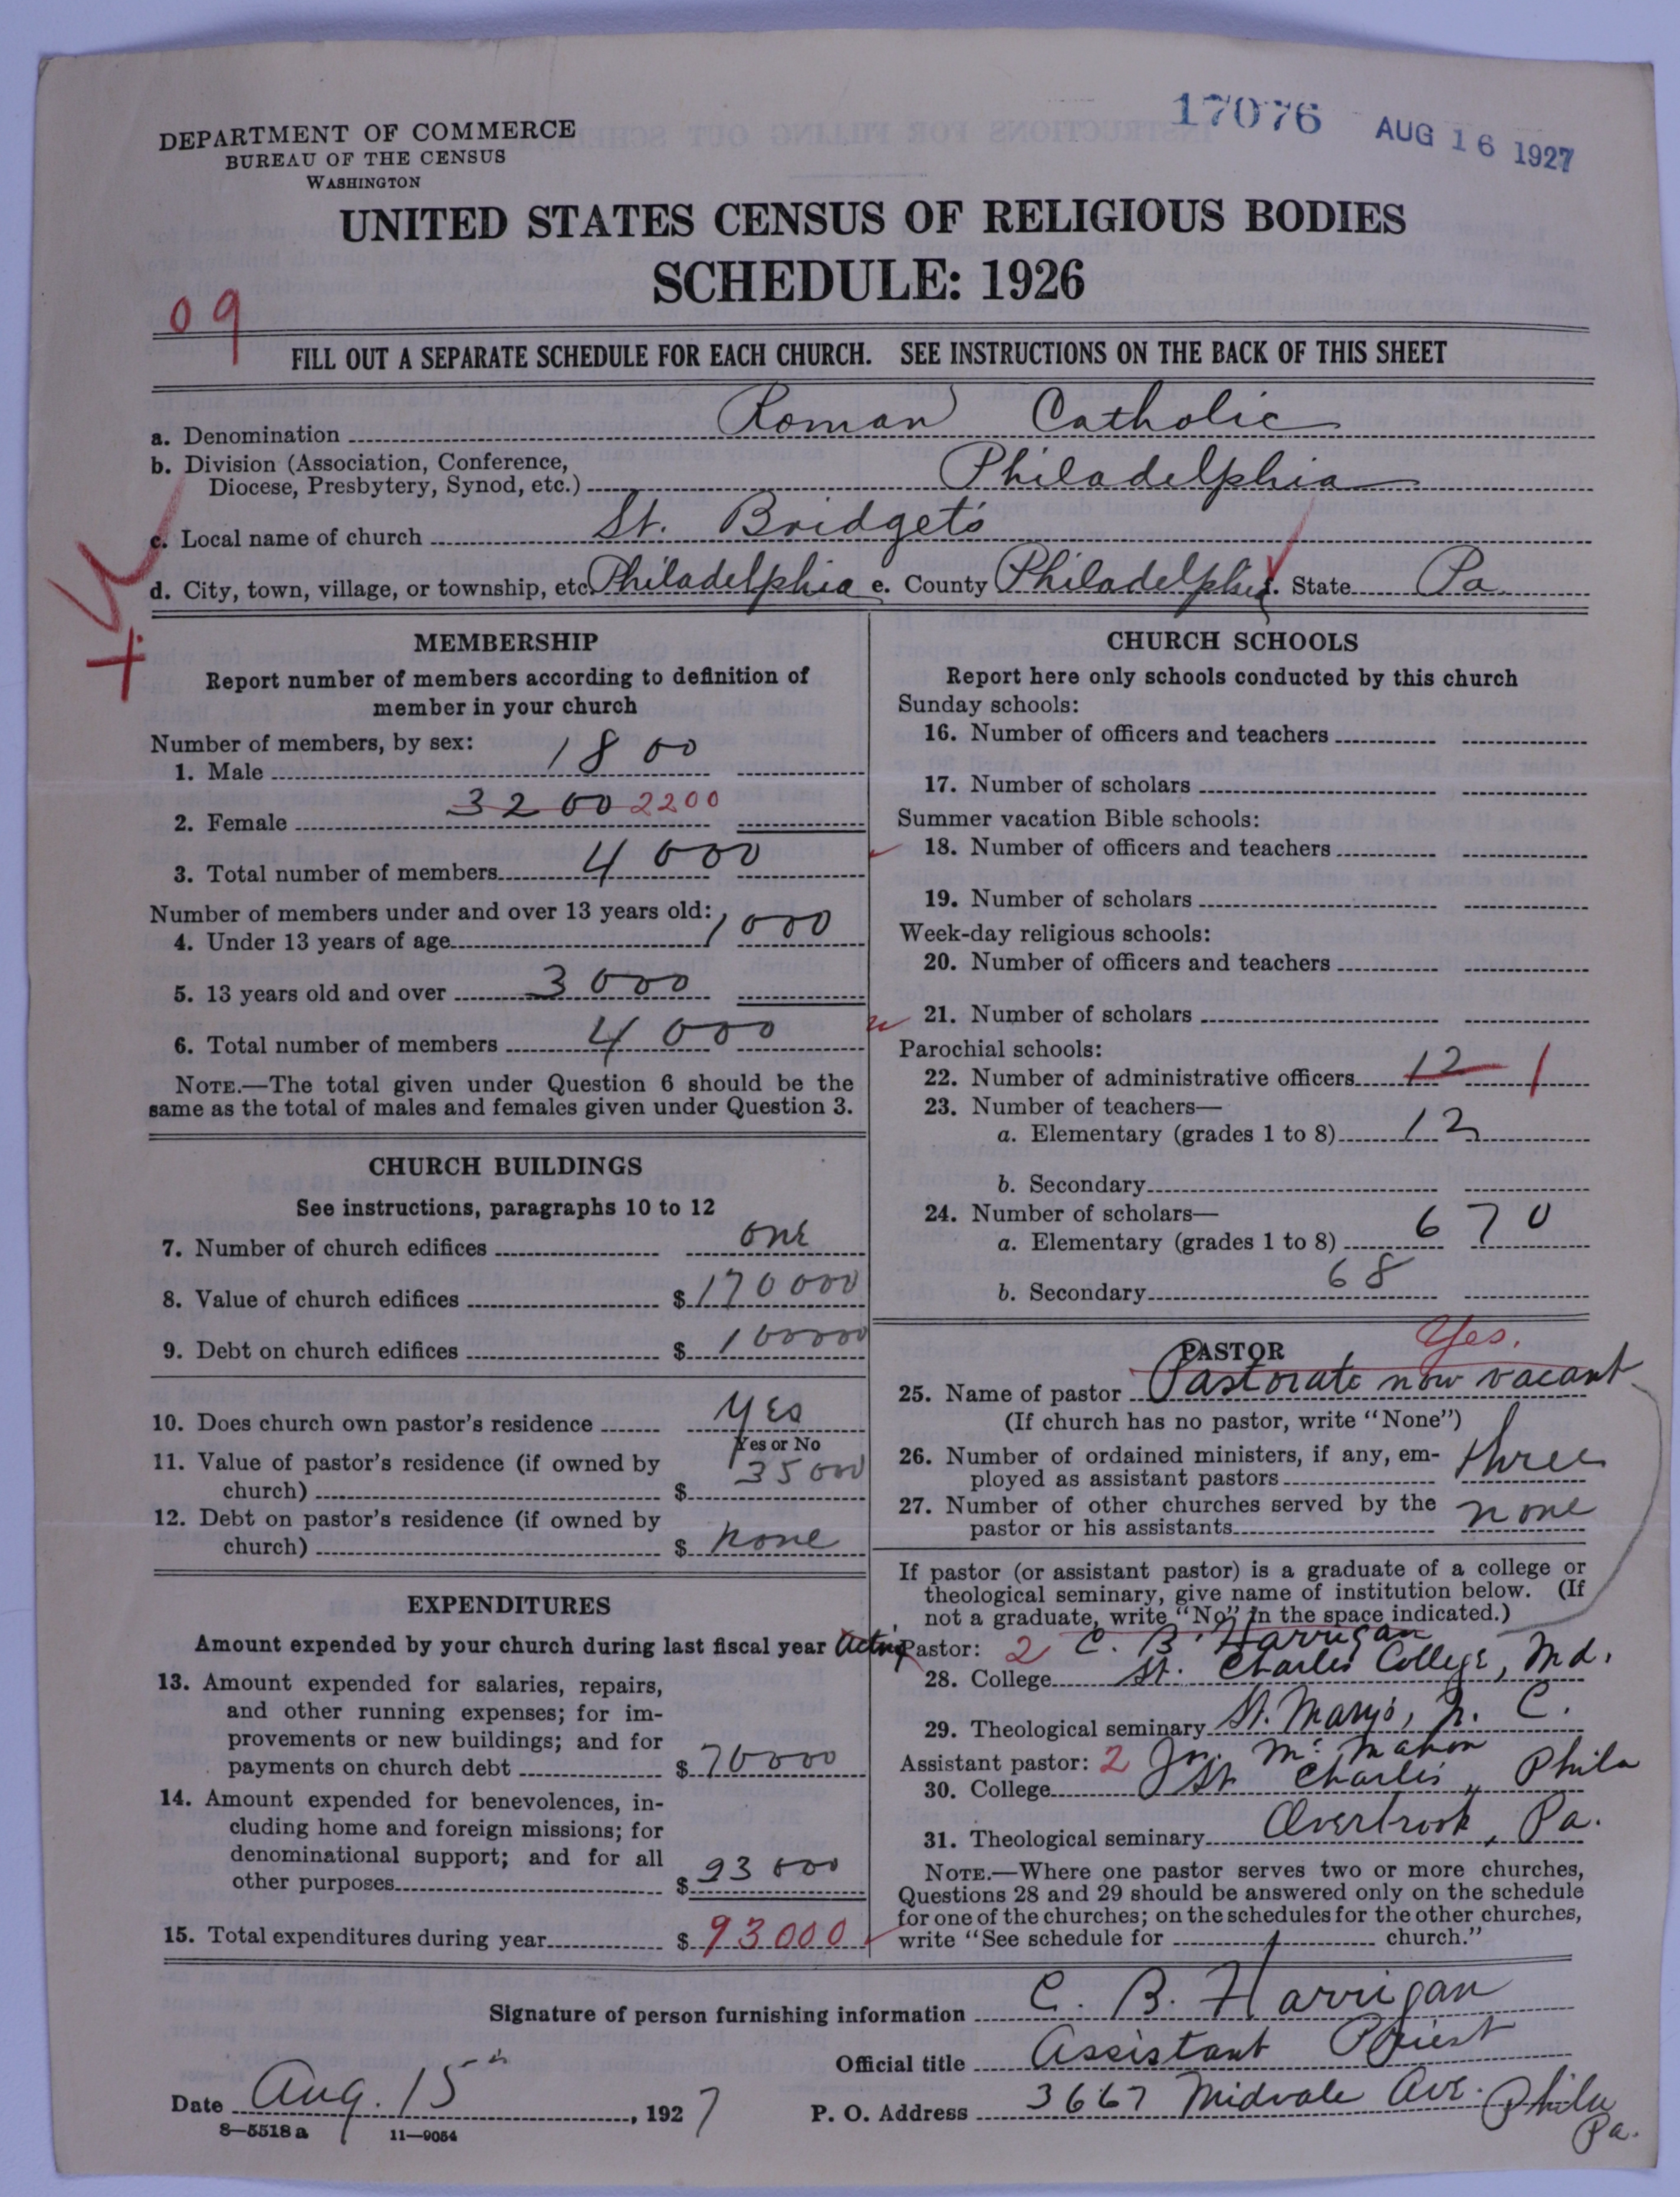 17076 AUG 16 1927
DEPARTMENT OF COMMERCE
BUREAU OF THE CENSUS
WASHINGTON
UNITED STATES CENSUS OF RELIGIOUS BODIES
SCHEDULE: 1926
09
FILL OUT A SEPARATE SCHEDULE FOR EACH CHURCH. SEE INSTRUCTIONS ON THE BACK OF THIS SHEET
a. Denomination Roman Catholic
b. Division (Association, Conference,
Diocese, Presbytery, Synod, etc.) Philadelphia
c. Local name of church St. Bridget's
d. City, town, village, or township, etc. Philadelphia e. County Philadelphia f. State Pa.
MEMBERSHIP
Report number of members according to definition of
member in your church
Number of members, by sex:
1. Male 1800
2. Female 3200 2200
3. Total number of members 4000
Number of members under and over 13 years old:
4. Under 13 years of age 1000
5. 13 years old and over 3000
6. Total number of members 4000
NOTE.—The total given under Question 6 should be the
same as the total of males and females given under Question 3.
CHURCH BUILDINGS
See instructions, paragraphs 10 to 12
7. Number of church edifices one
8. Value of church edifices $ 170000
9. Debt on church edifices $ 100000
10. Does church own pastor's residence Yes
Yes or No
11. Value of pastor's residence (if owned by
church) $ 35000
12. Debt on pastor's residence (if owned by
church) $ none
EXPENDITURES
Amount expended by your church during last fiscal year
13. Amount expended for salaries, repairs,
and other running expenses; for im-
provements or new buildings; and for
payments on church debt $ 70000
14. Amount expended for benevolences, in-
cluding home and foreign missions; for
denominational support; and for all
other purposes $ 23000
15. Total expenditures during year $ 93000
CHURCH SCHOOLS
Report here only schools conducted by this church
Sunday schools:
16. Number of officers and teachers
17. Number of scholars
Summer vacation Bible schools:
18. Number of officers and teachers
19. Number of scholars
Week-day religious schools:
20. Number of officers and teachers
21. Number of scholars
Parochial schools:
22. Number of administrative officers 12 1
23. Number of teachers—
a. Elementary (grades 1 to 8) 12
b. Secondary
24. Number of scholars—
a. Elementary (grades 1 to 8) 670
b. Secondary 68
PASTOR Yes.
25. Name of pastor Pastorate now vacant
(If church has no pastor, write "None")
26. Number of ordained ministers, if any, em-
ployed as assistant pastors three
27. Number of other churches served by the
pastor or his assistants none
If pastor (or assistant pastor) is a graduate of a college or
theological seminary, give name of institution below. (If
not a graduate, write "No" in the space indicated.)
Acting Pastor: 2 C. B. Harrigan
28. College St. Charles College, Md.
29. Theological seminary St. Mary's, N. C.
Assistant pastor: 2 Jn. McMahon
30. College St Charles, Phila
31. Theological seminary Overbrook, Pa.
NOTE.—Where one pastor serves two or more churches,
Questions 28 and 29 should be answered only on the schedule
for one of the churches; on the schedules for the other churches,
write "See schedule for church."
Signature of person furnishing information C. B. Harrigan
Official title Assistant Priest
Date Aug. 15th, 1927 P. O. Address 3667 Midvale Ave. Phila
Pa.
8—5518a 11—9054